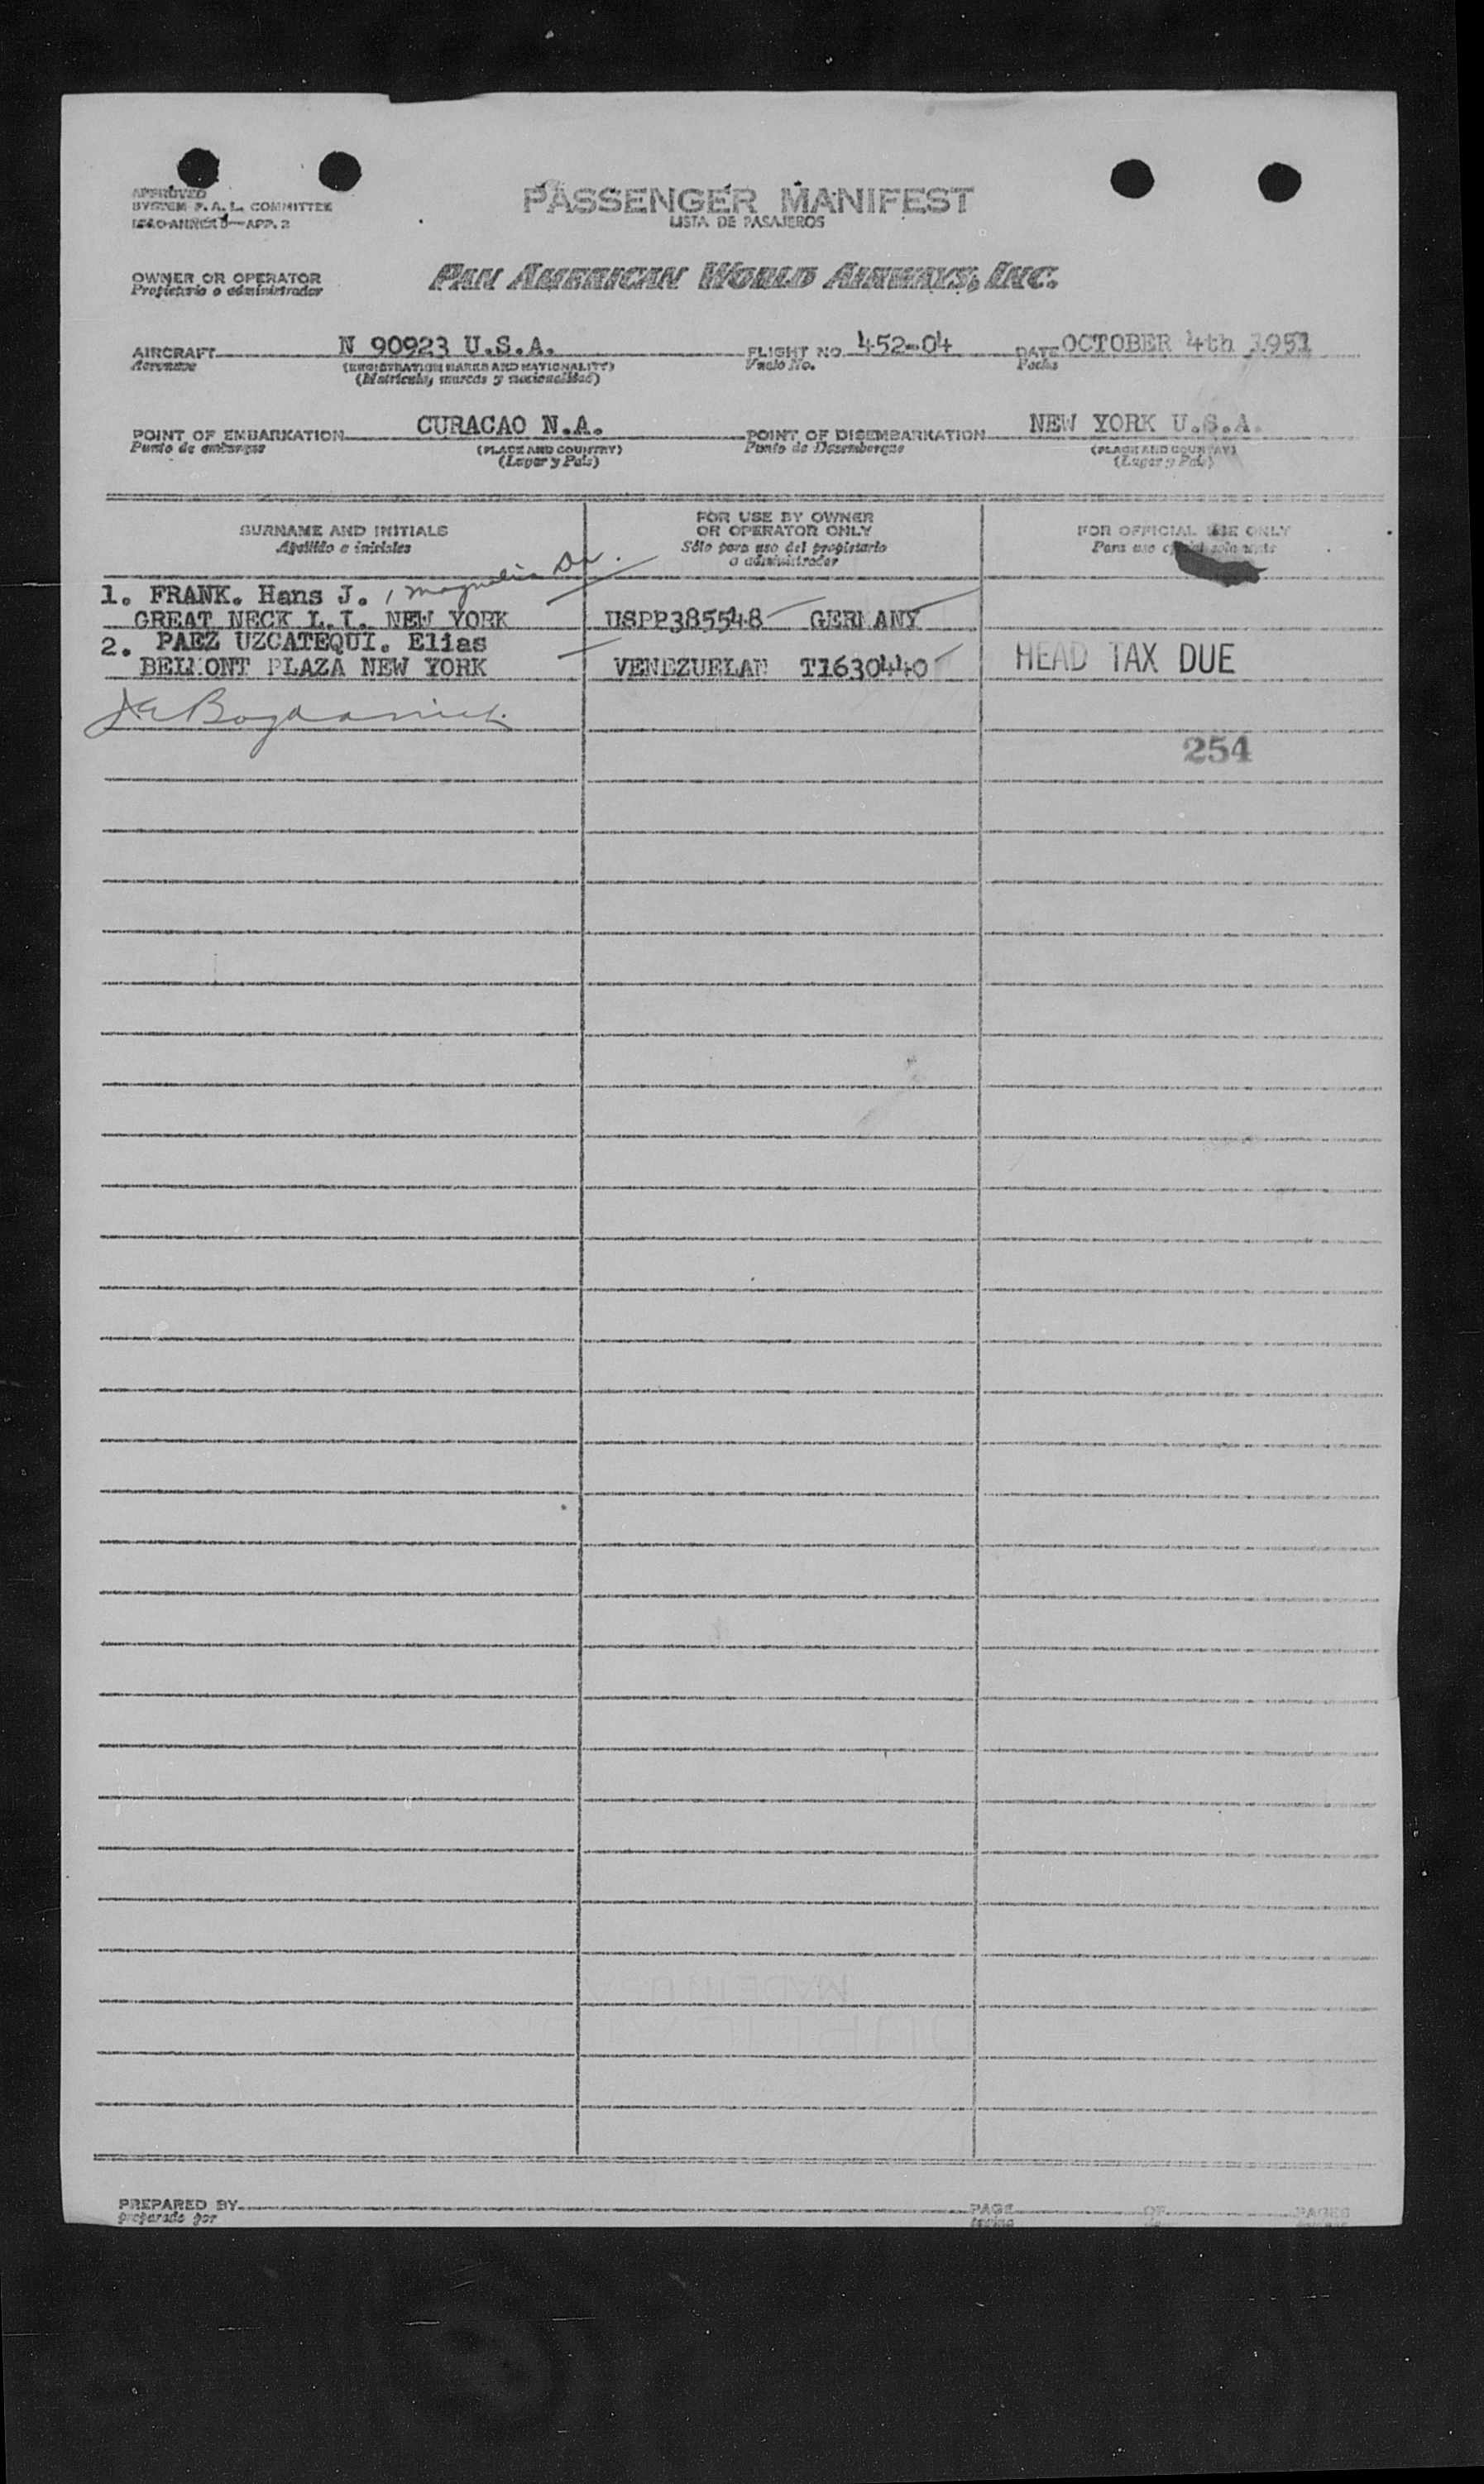 APPROVED
SYSTEM F. A. L. COMMITTEE
ICAO ANNEX 9—APP. 2
PASSENGER MANIFEST
LISTA DE PASAJEROS
OWNER OR OPERATOR
Propietario o administrador
PAN AMERICAN WORLD AIRWAYS, INC.
AIRCRAFT N 90923 U.S.A. FLIGHT NO. 452-04 DATE OCTOBER 4th 1951
Aeronave (REGISTRATION MARKS AND NATIONALITY) Vuelo No. Fecha
(Matricula, marcas y nacionalidad)
POINT OF EMBARKATION CURACAO N.A. POINT OF DISEMBARKATION NEW YORK U.S.A.
Punto de embarque (PLACE AND COUNTRY) Punto de Desembarque (PLACE AND COUNTRY)
(Lugar y Pais) (Lugar y Pais)
SURNAME AND INITIALS
Apellido e iniciales
FOR USE BY OWNER
OR OPERATOR ONLY
Sólo para uso del propietario
o administrador
FOR OFFICIAL USE ONLY
Para uso oficial solamente
1. FRANK. Hans J. , Magnolia Dr.
GREAT NECK L.I. NEW YORK USPP385548 GERMANY
2. PAEZ UZCATEQUI. Elias
BELMONT PLAZA NEW YORK VENEZUELAN T1630440 HEAD TAX DUE
254
PREPARED BY PAGE OF PAGES
preparado por